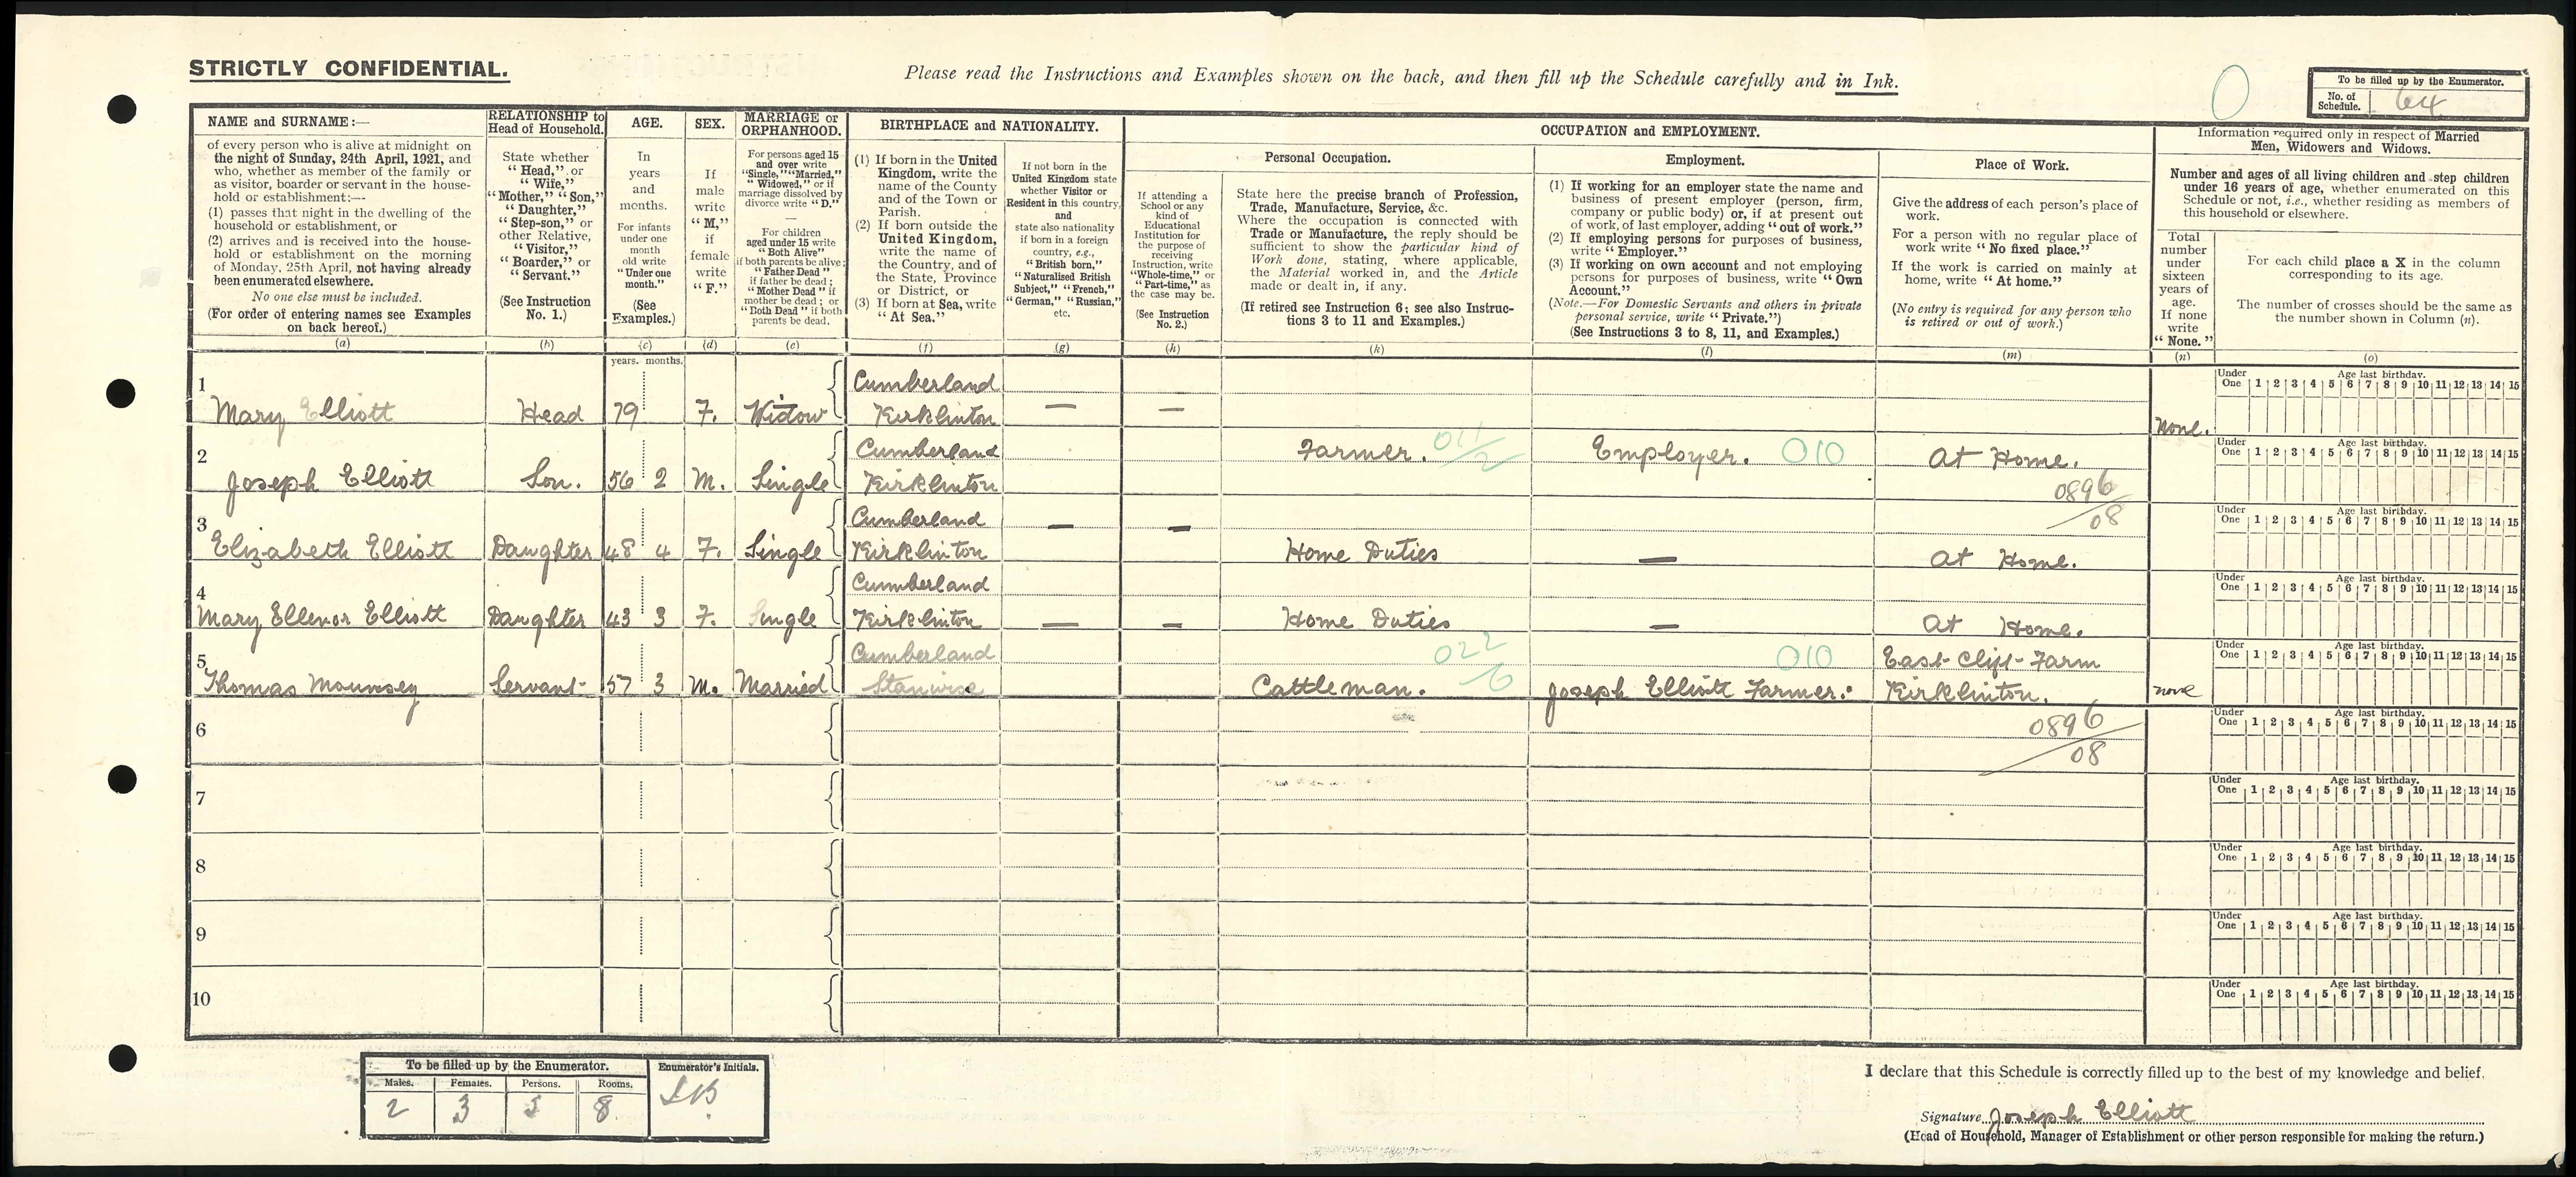 STRICTLY CONFIDENTIAL.
Please read the Instructions and Examples shown on the back, and then fill up the Schedule carefully and in Ink.
To be filled up by the Enumerator.
No. of Schedule. 64
NAME and SURNAME:—
of every person who is alive at midnight on
the night of Sunday, 24th April, 1921, and
who, whether as member of the family or
as visitor, boarder or servant in the house-
hold or establishment:—
(1) passes that night in the dwelling of the
household or establishment, or
(2) arrives and is received into the house-
hold or establishment on the morning
of Monday, 25th April, not having already
been enumerated elsewhere.
No one else must be included.
(For order of entering names see Examples
on back hereof.)
(a)
RELATIONSHIP to
Head of Household.
State whether
"Head," or
"Wife,"
"Mother," "Son,"
"Daughter,"
"Step-son," or
other Relative,
"Visitor,"
"Boarder," or
"Servant."
(See Instruction
No. 1.)
(b)
AGE.
In
years
and
months.
For infants
under one
month
old write
"Under one
month."
(See
Examples.)
(c)
SEX.
If
male
write
"M,"
if
female
write
"F."
(d)
MARRIAGE or
ORPHANHOOD.
For persons aged 15
and over write
"Single," "Married,"
"Widowed," or if
marriage dissolved by
divorce write "D."
—
For children
aged under 15 write
"Both Alive"
if both parents be alive;
"Father Dead"
if father be dead;
"Mother Dead" if
mother be dead; or
"Both Dead" if both
parents be dead.
(e)
BIRTHPLACE and NATIONALITY.
(1) If born in the United
Kingdom, write the
name of the County
and of the Town or
Parish.
(2) If born outside the
United Kingdom,
write the name of
the Country, and of
the State, Province
or District, or
(3) If born at Sea, write
"At Sea."
(f)
If not born in the
United Kingdom state
whether Visitor or
Resident in this country,
and
state also nationality
if born in a foreign
country, e.g.,
"British born,"
"Naturalised British
Subject," "French,"
"German," "Russian,"
etc.
(g)
OCCUPATION and EMPLOYMENT.
If attending a
School or any
kind of
Educational
Institution for
the purpose of
receiving
Instruction, write
"Whole-time," or
"Part-time," as
the case may be.
(See Instruction
No. 2.)
(h)
Personal Occupation.
State here the precise branch of Profession,
Trade, Manufacture, Service, &c.
Where the occupation is connected with
Trade or Manufacture, the reply should be
sufficient to show the particular kind of
Work done, stating, where applicable,
the Material worked in, and the Article
made or dealt in, if any.
(If retired see Instruction 6; see also Instruc-
tions 3 to 11 and Examples.)
(k)
Employment.
(1) If working for an employer state the name and
business of present employer (person, firm,
company or public body) or, if at present out
of work, of last employer, adding "out of work."
(2) If employing persons for purposes of business,
write "Employer."
(3) If working on own account and not employing
persons for purposes of business, write "Own
Account."
(Note.—For Domestic Servants and others in private
personal service, write "Private.")
(See Instructions 3 to 8, 11, and Examples.)
(l)
Place of Work.
Give the address of each person's place of
work.
For a person with no regular place of
work write "No fixed place."
If the work is carried on mainly at
home, write "At home."
(No entry is required for any person who
is retired or out of work.)
(m)
Information required only in respect of Married
Men, Widowers and Widows.
Number and ages of all living children and step children
under 16 years of age, whether enumerated on this
Schedule or not, i.e., whether residing as members of
this household or elsewhere.
Total
number
under
sixteen
years of
age.
If none
write
"None."
(n)
For each child place a X in the column
corresponding to its age.
The number of crosses should be the same as
the number shown in Column (n).
(o)
years. months.
1 Mary Elliott Head 79 F. Widow Cumberland Kirklinton — — None.
Under One Age last birthday. 1 2 3 4 5 6 7 8 9 10 11 12 13 14 15
2 Joseph Elliott Son. 56 2 M. Single Cumberland Kirklinton Farmer. 011/2 Employer. 010 At Home. 0896/08
Under One Age last birthday. 1 2 3 4 5 6 7 8 9 10 11 12 13 14 15
3 Elizabeth Elliott Daughter 48 4 F. Single Cumberland Kirklinton — — Home Duties — At Home.
Under One Age last birthday. 1 2 3 4 5 6 7 8 9 10 11 12 13 14 15
4 Mary Ellenor Elliott Daughter 43 3 F. Single Cumberland Kirklinton — — Home Duties — At Home.
Under One Age last birthday. 1 2 3 4 5 6 7 8 9 10 11 12 13 14 15
5 Thomas Mounsey Servant 57 3 M. Married Cumberland Stanwise Cattleman. 022/6 Joseph Elliott Farmer. 010 East-Clift-Farm Kirklinton. none
Under One Age last birthday. 1 2 3 4 5 6 7 8 9 10 11 12 13 14 15
6 0896/08
Under One Age last birthday. 1 2 3 4 5 6 7 8 9 10 11 12 13 14 15
7
Under One Age last birthday. 1 2 3 4 5 6 7 8 9 10 11 12 13 14 15
8
Under One Age last birthday. 1 2 3 4 5 6 7 8 9 10 11 12 13 14 15
9
Under One Age last birthday. 1 2 3 4 5 6 7 8 9 10 11 12 13 14 15
10
Under One Age last birthday. 1 2 3 4 5 6 7 8 9 10 11 12 13 14 15
To be filled up by the Enumerator.
Enumerator's Initials.
Males. Females. Persons. Rooms.
2 3 5 8
I declare that this Schedule is correctly filled up to the best of my knowledge and belief.
Signature Joseph Elliott
(Head of Household, Manager of Establishment or other person responsible for making the return.)